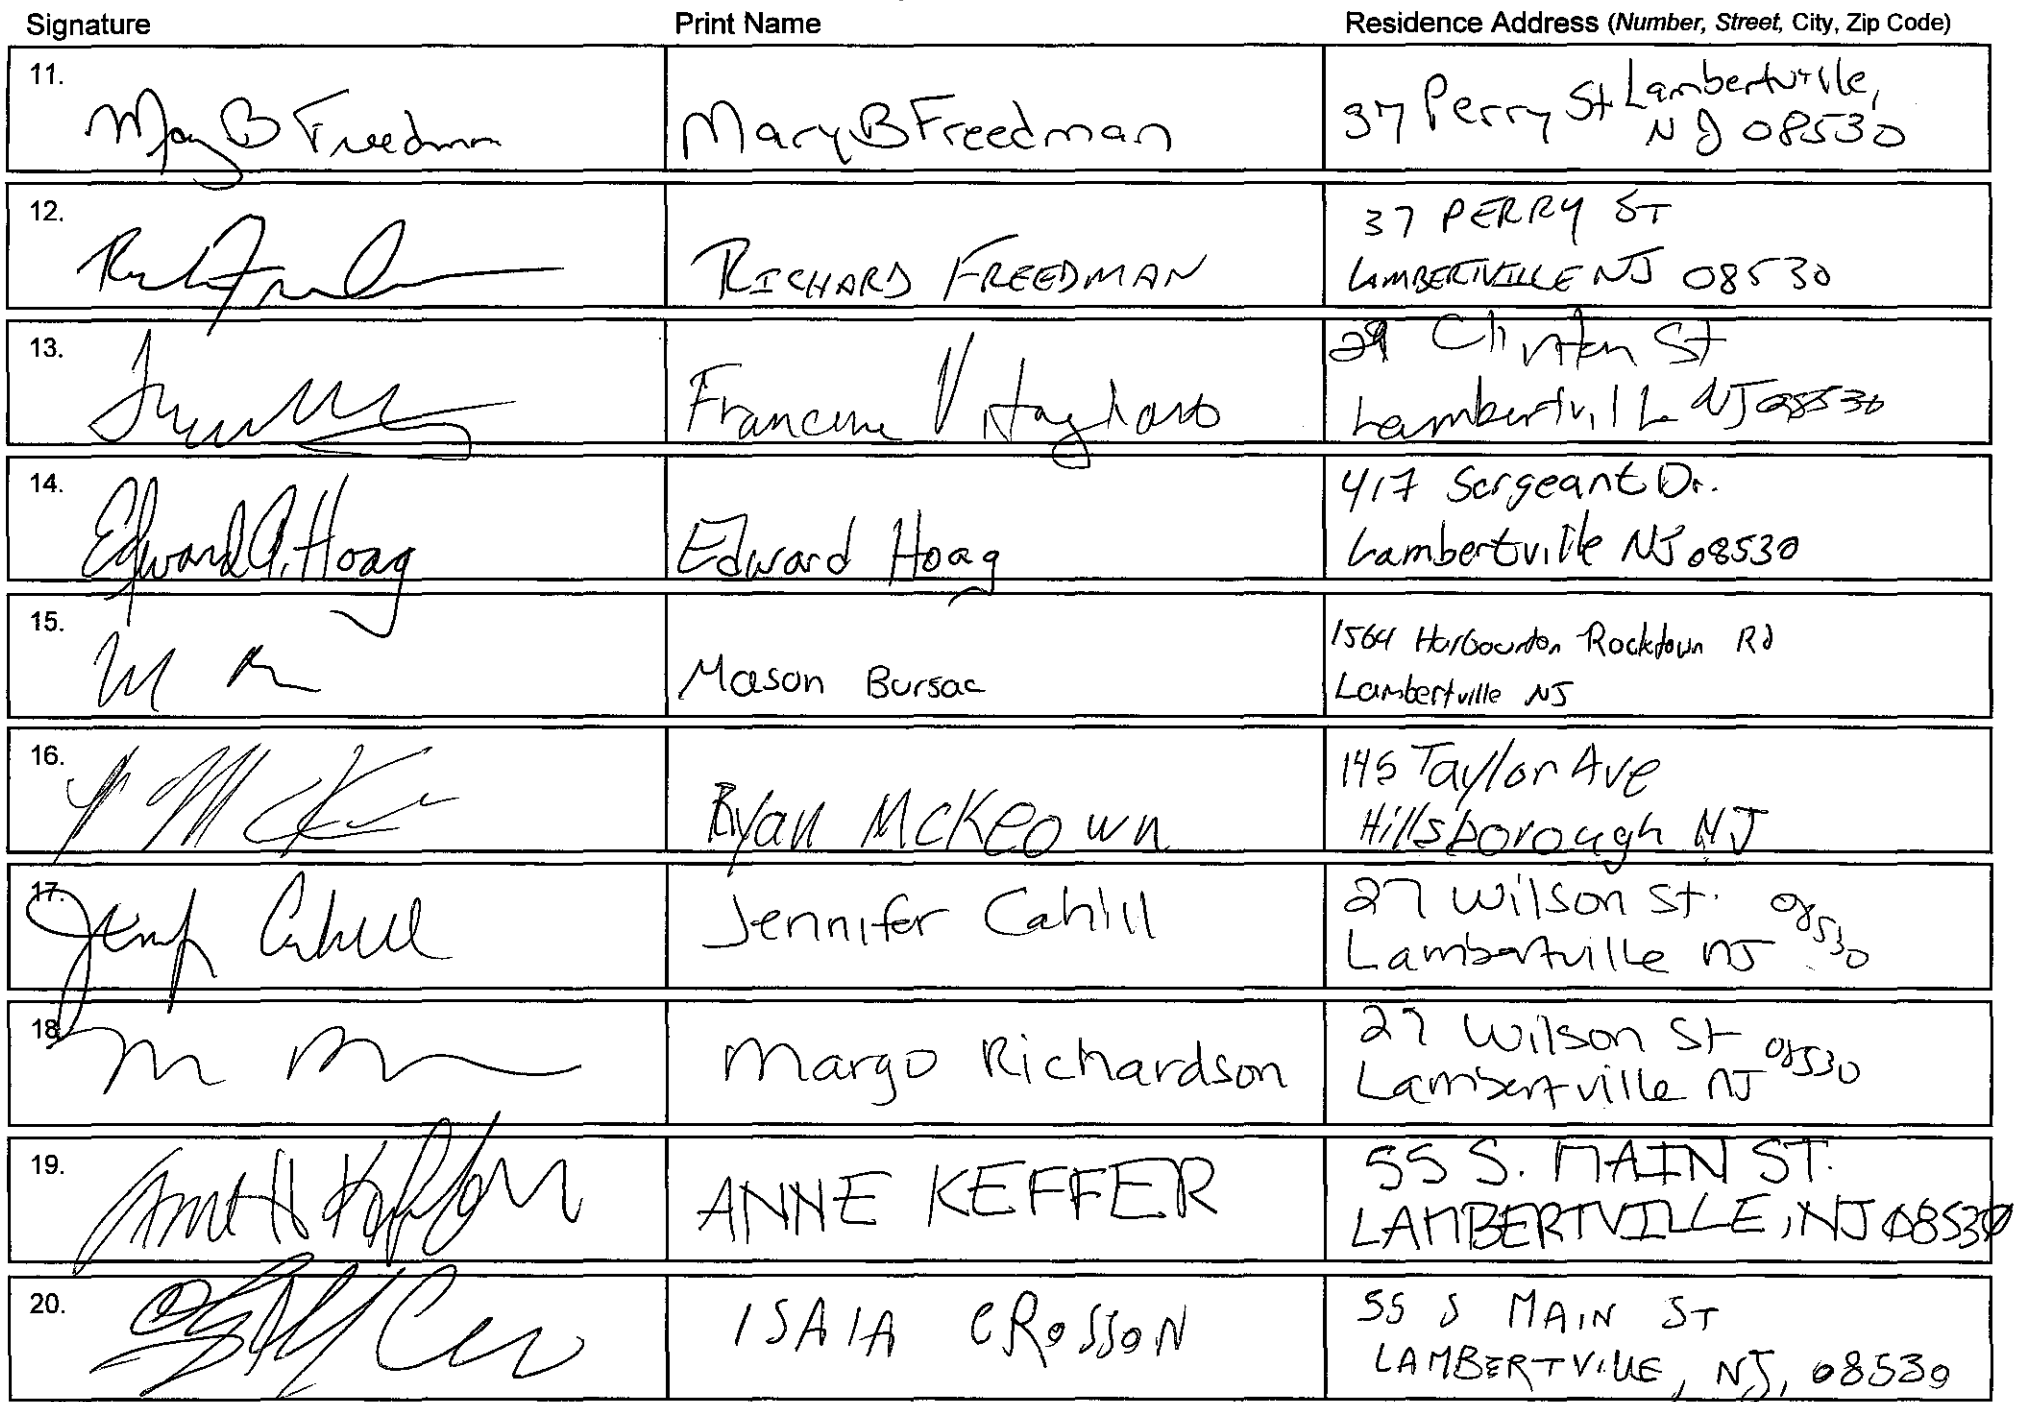 Signature Print Name Residence Address (Number, Street, City, Zip Code)
11.
Mary B Freedman Mary B Freedman 37 Perry St Lambertville,
NJ 08530
12.
RICHARD FREEDMAN 37 PERRY ST
LAMBERTVILLE NJ 08530
13.
Francine Vitagliano 29 Clinton St
Lambertville NJ 08530
14.
Edward A. Hoag Edward Hoag 417 Sergeant Dr.
Lambertville NJ 08530
15.
Mason Bursac 1564 Harbourton Rocktown Rd
Lambertville NJ
16.
Ryan McKeown 145 Taylor Ave
Hillsborough NJ
17.
Jennifer Cahill 27 Wilson St. 08530
Lambertville NJ
18
Margo Richardson 27 Wilson St 08530
Lambertville NJ
19.
ANNE KEFFER 55 S. MAIN ST.
LAMBERTVILLE, NJ 08530
20.
ISAIA CROSSON 55 S MAIN ST
LAMBERTVILLE, NJ, 08530